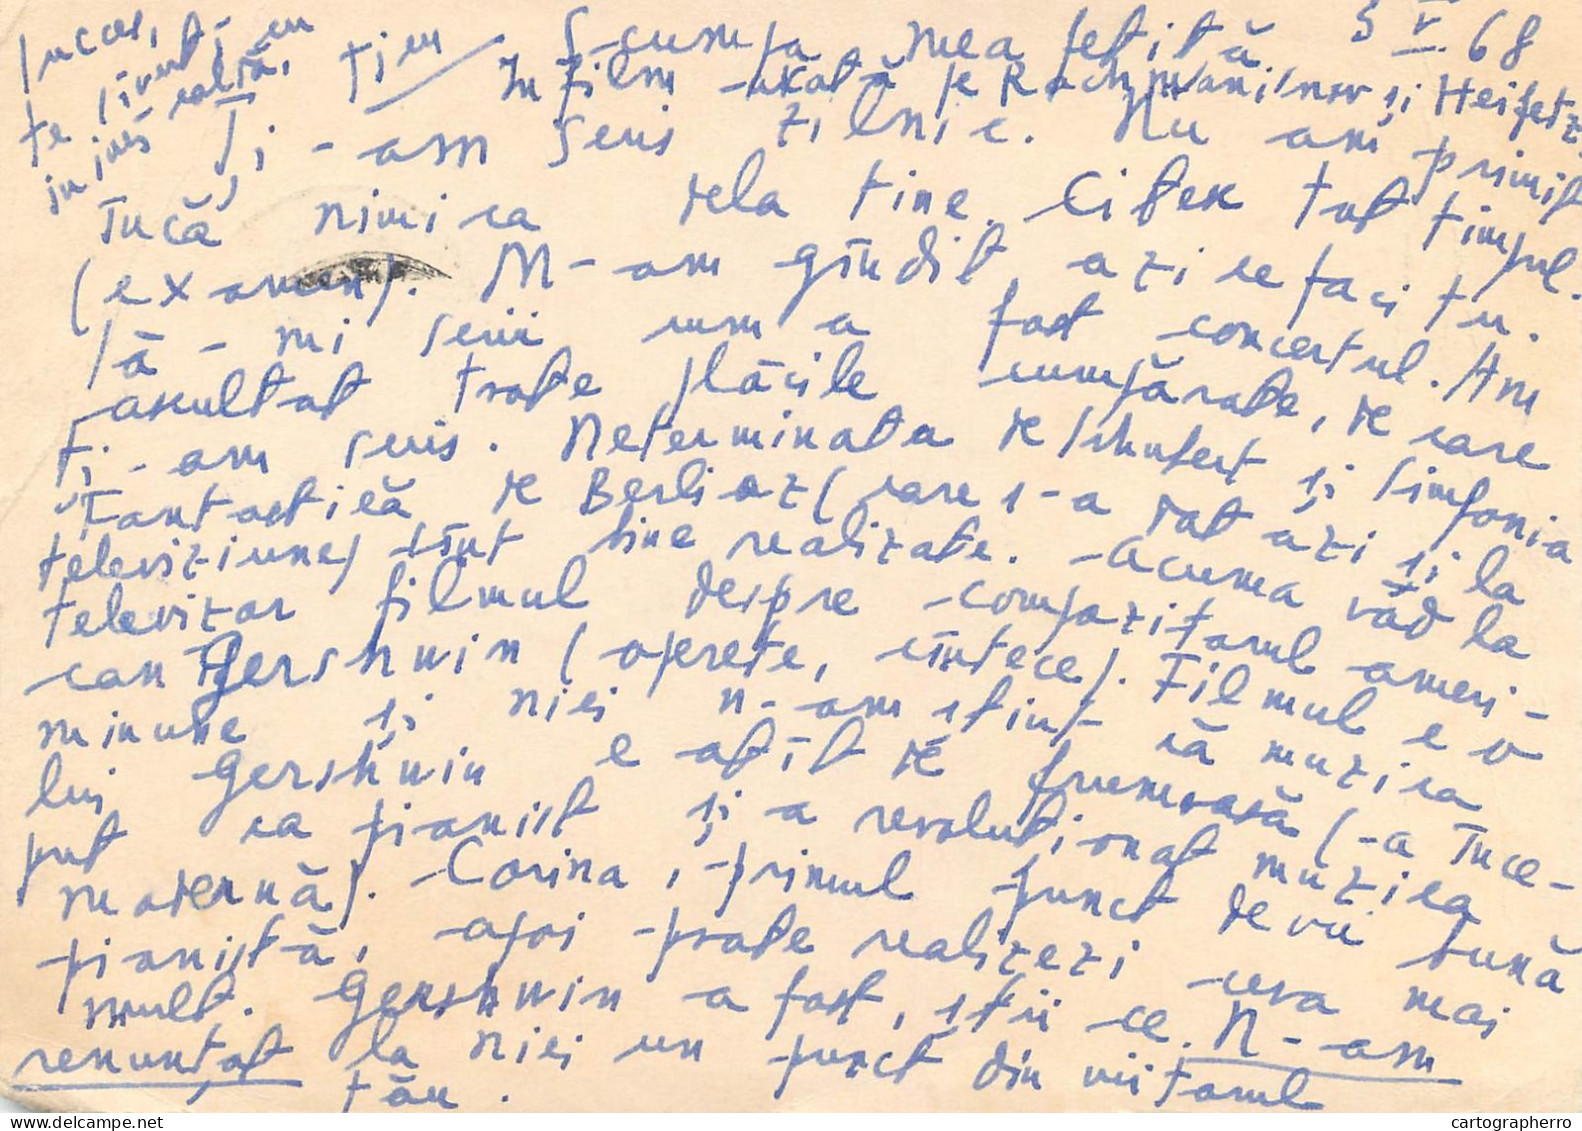 5 V 68
Scumpa mea fetiță
În film -arată pe Rachmaninov și Heifetz.
Ți-am scris zilnic. Nu am primit
încă nimica dela tine. Citesc tot timpul.
(examen). M-am gîndit, azi ce faci tu.
Să-mi scrii cum a fost concertul. Am
ascultat toate plăcile cumpărate, de care
ți-am scris. Neterminata de Schubert și Simfonia
Fantastică de Berlioz (care s-a dat azi și la
televiziune) sînt bine realizate. Acuma văd la
televizor filmul despre compozitorul ameri-
can Gershwin (operete, cîntece). Filmul e o
minune și nici n-am știut că muzica
lui Gershwin e atît de frumoasă (-a înce-
put ca pianist și a revoluționat muzica
modernă). Corina, primul punct devii bună
pianistă, apoi poate realizezi ceva mai
mult. Gershwin a fost, știi ce. N-am
renunțat la nici un punct din viitorul
tău.
Succes,
te
tj eu
cartographerro